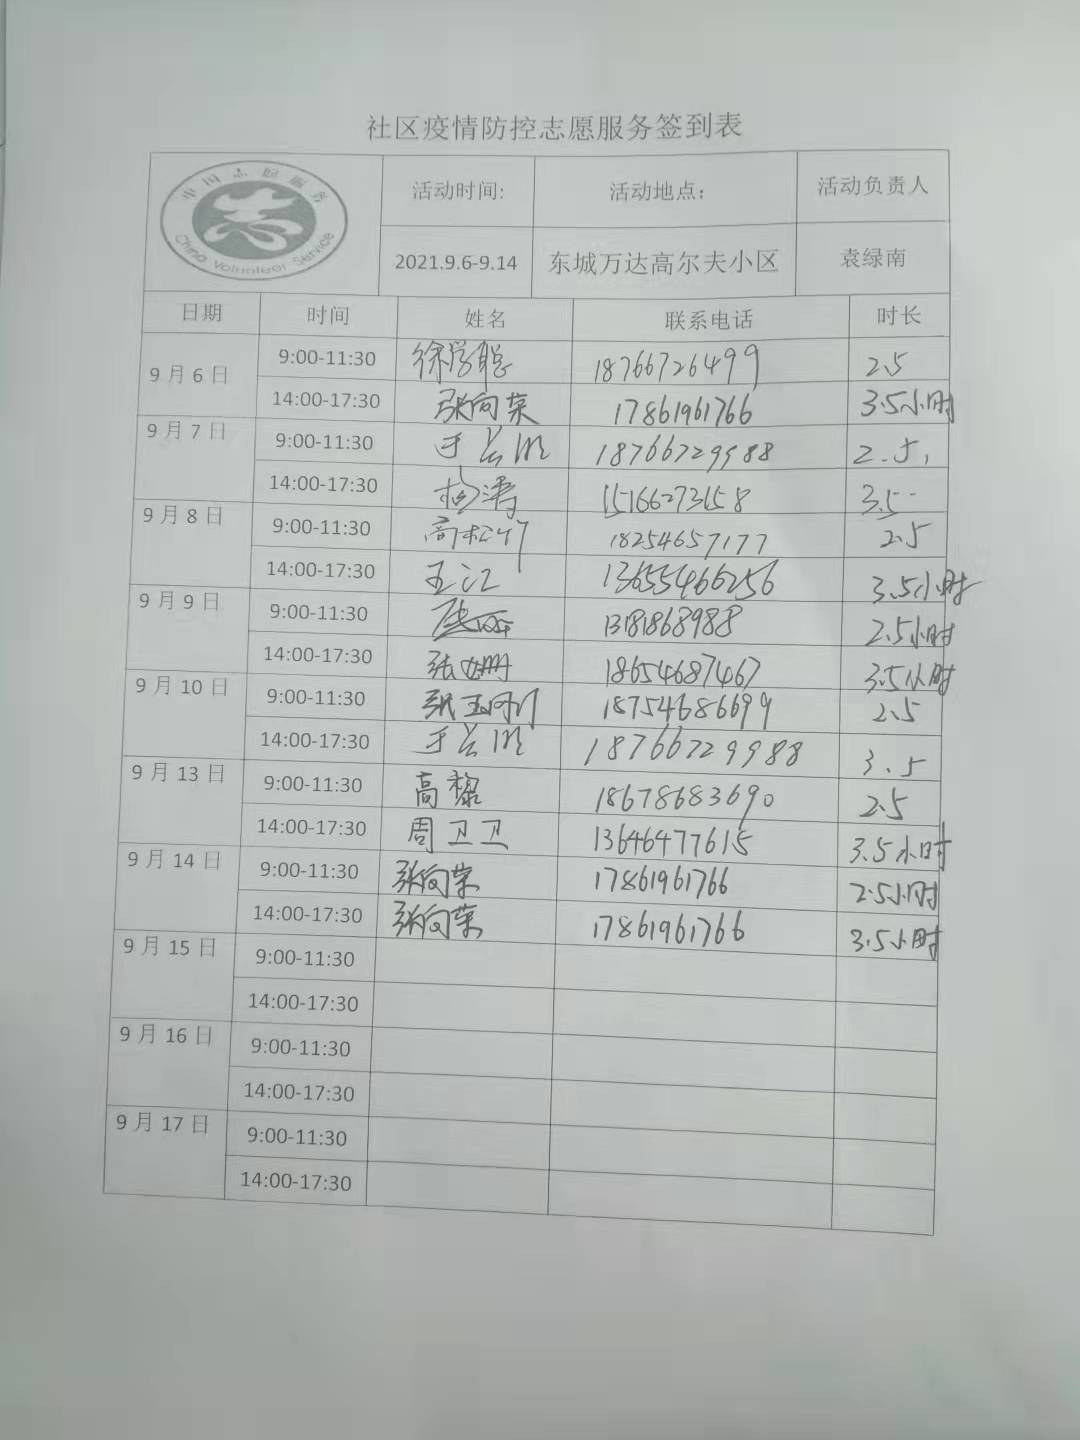 社区疫情防控志愿服务签到表
中国志愿服务
China Volunteer Service
活动时间: 活动地点: 活动负责人
2021.9.6-9.14 东城万达高尔夫小区 袁绿南
日期 时间 姓名 联系电话 时长
9月6日 9:00-11:30 徐学聪 18766726499 2.5
14:00-17:30 张向荣 17861961766 3.5小时
9月7日 9:00-11:30 18766729988 2.5
14:00-17:30 杨涛 15166273158 3.5
9月8日 9:00-11:30 高松竹 18254657177 2.5
14:00-17:30 王江 13655466256 3.5小时
9月9日 9:00-11:30 13181868988 2.5小时
14:00-17:30 张姗 18654687467 3.5小时
9月10日 9:00-11:30 张玉 18754686699 2.5
14:00-17:30 18766729988 3.5
9月13日 9:00-11:30 高黎 18678683690 2.5
14:00-17:30 周卫卫 13646477615 3.5小时
9月14日 9:00-11:30 张向荣 17861961766 2.5小时
14:00-17:30 张向荣 17861961766 3.5小时
9月15日 9:00-11:30
14:00-17:30
9月16日 9:00-11:30
14:00-17:30
9月17日 9:00-11:30
14:00-17:30